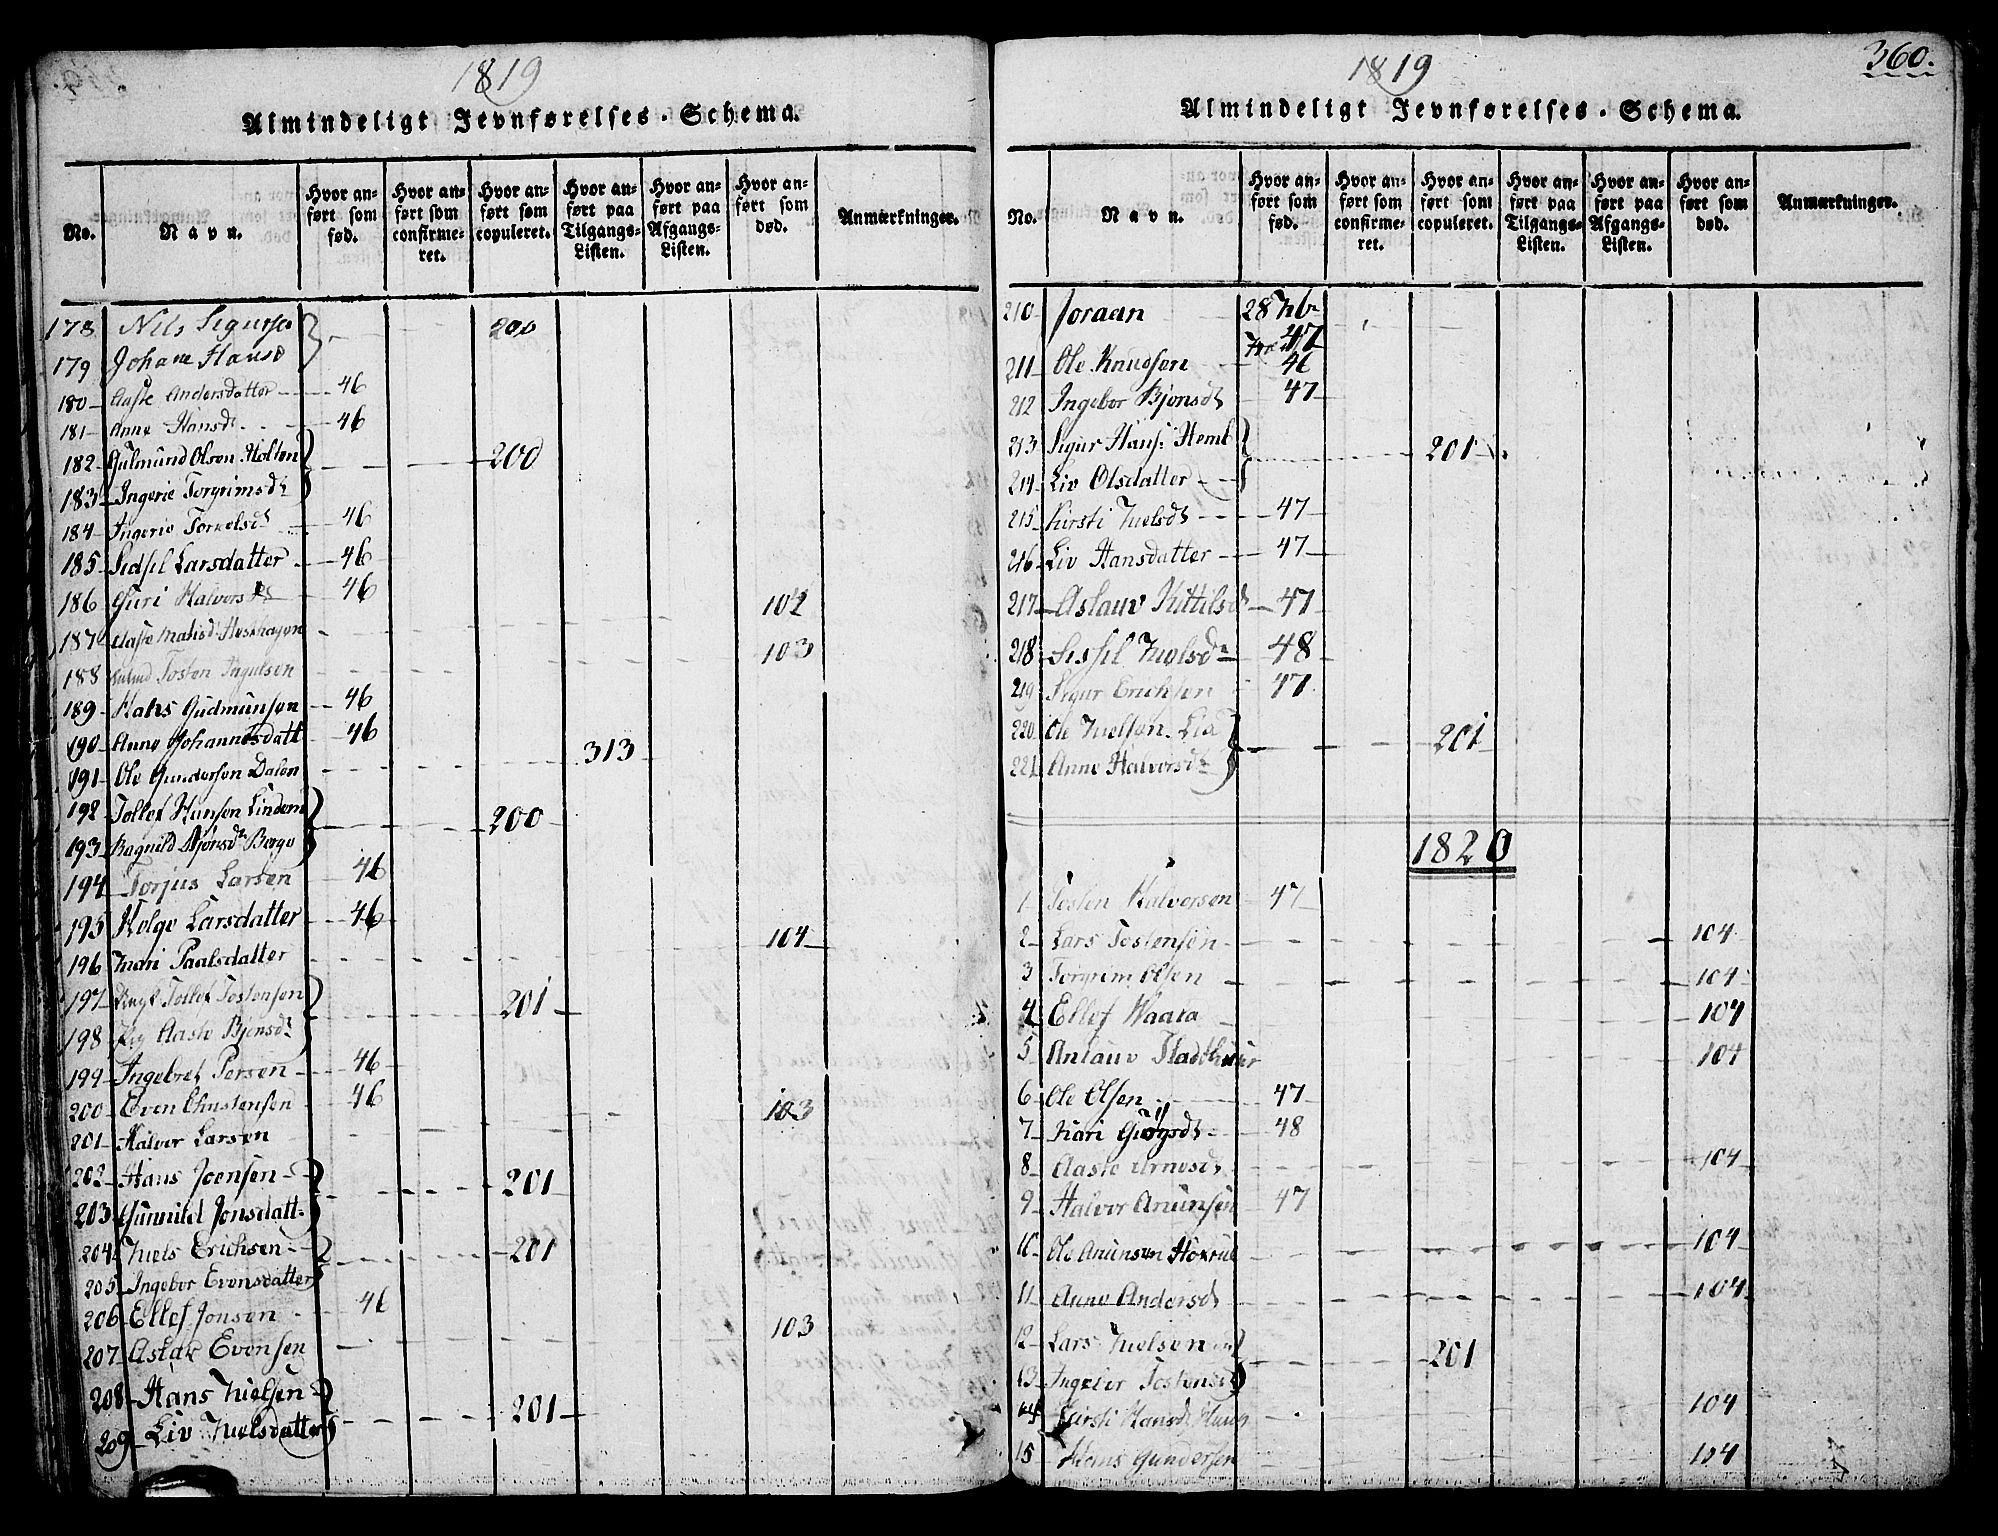 1819
Almindeligt Jevnførelses-Schema.
No.
Navn.
Hvor anført som fød.
Hvor anført som confirmeret.
Hvor anført som copuleret.
Hvor anført paa Tilgangs-Listen.
Hvor anført paa Afgangs-Listen.
Hvor anført som død.
Anmærkninger.
178 Nils 200
179 Johane Hansd
180 Aaste Andersdatter 46
181 Anne Hansd 46
182 Gulmund Olsen Holten 200
183 Ingerie Torgrimsdr
184 Ingerie Torkelsd 46
185 Sidsil Larsdatter 46
186 Guri Halvorsd 46
102
187 Aaste
103
188 Tosten Ingulsen
189 Hans Gudmunsen 46
190 Anne Johannesdatt 46
313
191 Ole Gundersen Dalen
192 Tollef Hansen Lindem 200
193 Ragnild Bjønsdr Berge
194 Torjus Larsen 46
195 Helge Larsdatter 46
104
196 Mari Paalsdatter
197 Tollef Tostensen 201
198 Aaste Bjønsdr
199 Ingebret Persen 46
200 Even Christensen 46
103
201 Halvor Larsen
202 Hans Joensen 201
203 Gunnild Jonsdatt
204 Niels Erichsen 201
205 Ingebor Evensdatter
206 Ellef Jonsen 46
103
207 Aslak Evensen
208 Hans Nielsen 201
209 Liv Nielsdatter
360.
1819
Almindeligt Jevnførelses-Schema.
No.
Navn.
Hvor anført som fød.
Hvor anført som confirmeret.
Hvor anført som copuleret.
Hvor anført paa Tilgangs-Listen.
Hvor anført paa Afgangs-Listen.
Hvor anført som død.
Anmærkninger.
210 Joraan 28
47
211 Ole Knudsen 46
212 Ingebor Bjønsdr 47
213 Sigur Hans: 201
214 Liv Olsdatter
215 Kirsti Nielsdr 47
216 Liv Hansdatter 47
217 Aslauv Kittilsd 47
218 Sissil Nielsdr 48
219 Sigur Erichsen 47
220 Ole Nielsen Lia 201
221 Anne Halvorsdr
1820
1 Tosten Halvorsen 47
2 Lars Tostensen 104
3 Torgrim Olsen 104
4 Ellef Waara 104
5 Anlauv 104
6 Ole Olsen 47
7 Kari 48
8 Aaste Arnesdr 104
9 Halvor Anunsen 47
10 Ole Anunsen 104
11 Anne Andersdr 104
12 Lars Nielsen 201
13 Ingebor Tostensd
14 Kirsti Hansdr 104
15 Hans Gundersen 104